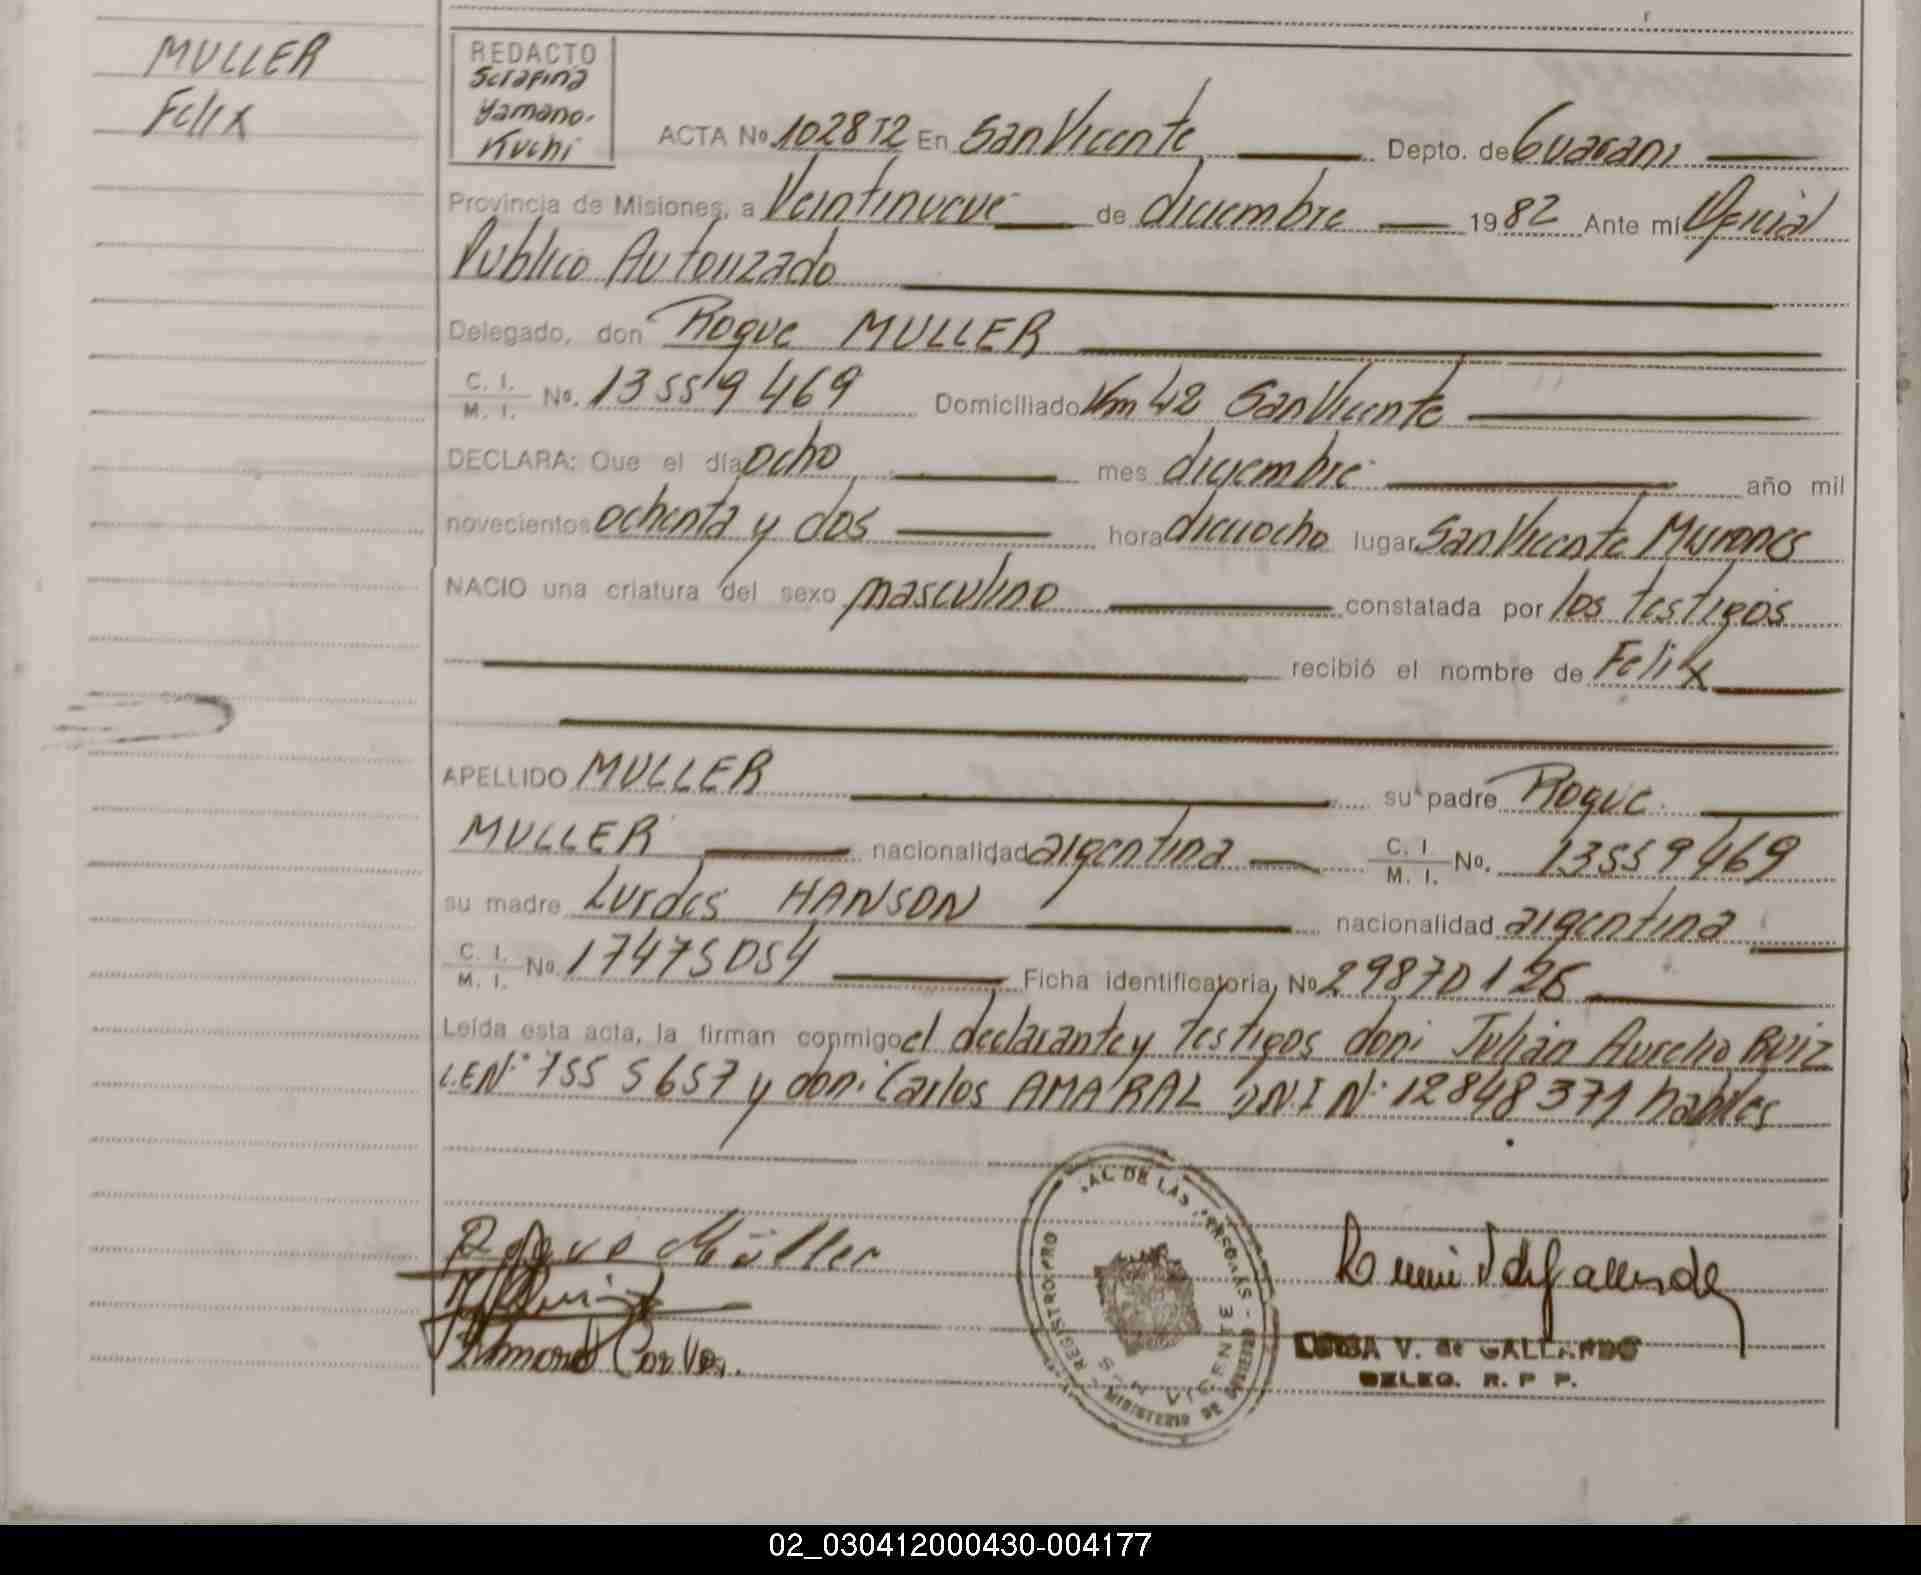 MULLER
Felix
REDACTO
Serafina
Yamano-
Kuchi
ACTA No. 1028T2 En San Vicente Depto. de Guarani
Provincia de Misiones, a Veintinueve de diciembre 1982 Ante mi Oficial
Publico Autorizado
Delegado, don Roque MULLER
C. I. / M. I. No. 13559469 Domiciliado Km 42 San Vicente
DECLARA: Que el día ocho mes diciembre año mil
novecientos ochenta y dos hora dieciocho lugar San Vicente Misiones
NACIO una criatura del sexo masculino constatada por los testigos
recibió el nombre de Felix
APELLIDO MULLER su padre Roque
MULLER nacionalidad argentina C. I. / M. I. No. 13559469
su madre Lurdes HANSON nacionalidad argentina
C. I. / M. I. No. 17475054 Ficha identificatoria, No 29870126
Leída esta acta, la firman conmigo el declarante y testigos don: Julian Aurelio Ruiz
L.E Nº 7555657 y don: Carlos AMARAL D.N.I Nº 12848371 habiles
Roque Müller
REGISTRO PRO AL DE LAS PERSONAS - MINISTERIO DE GOBIERNO
VICENTE
LUISA V. de GALLARDO
DELEG. R. P P.
02_030412000430-004177